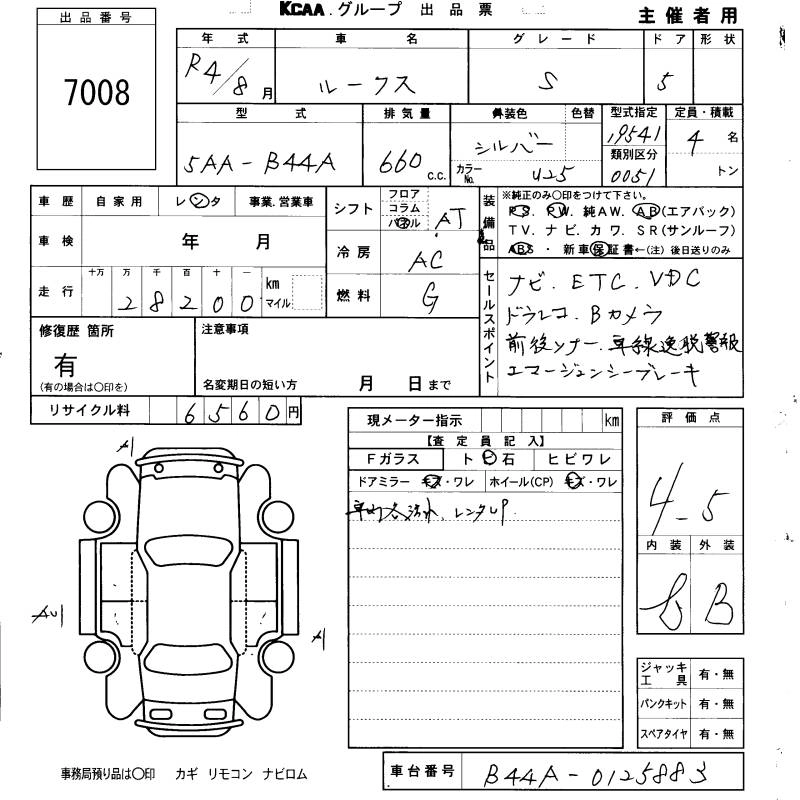 KCAA.グループ 出品票
主催者用
出品番号
7008
年式 車名 グレード ドア 形状
R4/8月 ルークス S 5
型式 排気量 外装色 色替 型式指定 定員・積載
5AA-B44A 660c.c. シルバー 19541 4名
カラーNo. U25 類別区分 0051 トン
車歴 自家用 レンタ 事業.営業車
シフト フロア コラム パネル AT
装備品 ※純正のみ〇印をつけて下さい。
PS. PW. 純AW. AB(エアバック)
TV. ナビ. カワ. SR(サンルーフ)
ABS・新車保証書←(注)後日送りのみ
車検 年 月
冷房 AC
走行 十万 万 千 百 十 一
28200 km マイル
燃料 G
セールスポイント
ナビ. ETC. VDC
ドラレコ. Bカメラ
前後ソナー. 車線逸脱警報
エマージェンシーブレーキ
修復歴 箇所
有
(有の場合は〇印を)
注意事項
名変期日の短い方 月 日まで
リサイクル料 6560円
現メーター指示 km
【査定員記入】
Fガラス トビ石 ヒビワレ
ドアミラー キズ・ワレ ホイール(CP) キズ・ワレ
レンタUP
評価点
4-5
内装 外装
B
A1
AU1
A1
ジャッキ工具 有・無
パンクキット 有・無
スペアタイヤ 有・無
事務局預り品は〇印 カギ リモコン ナビロム
車台番号 B44A-0125883